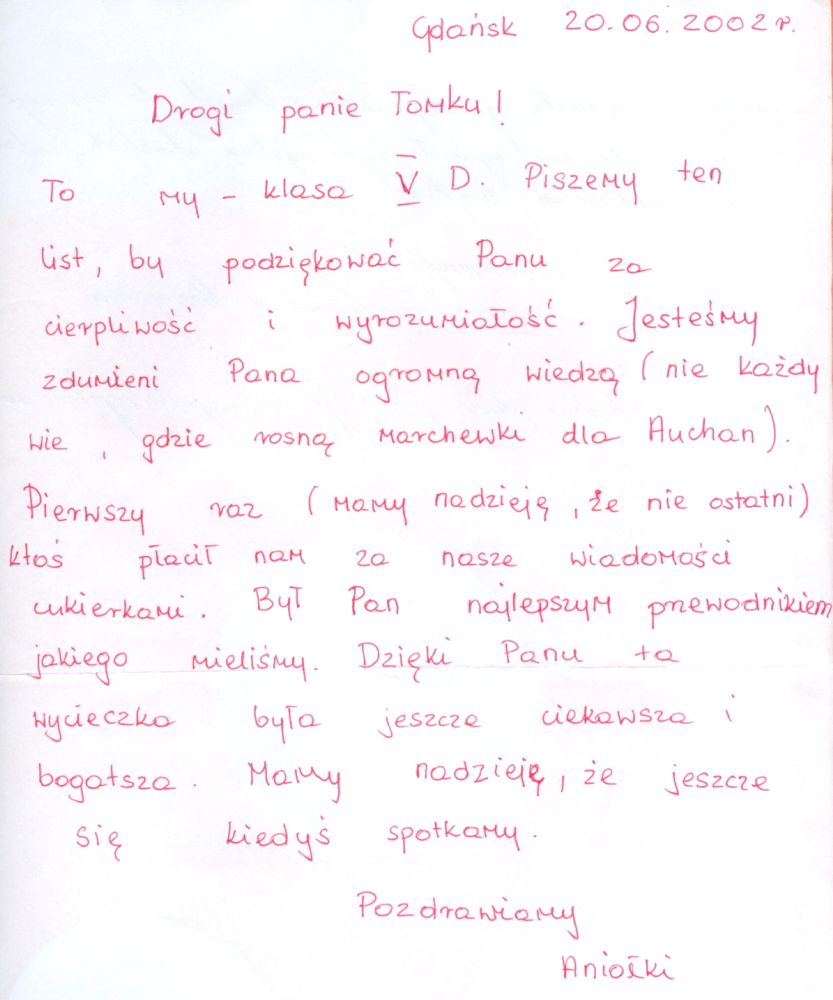 Gdańsk 20.06.2002r.
Drogi panie Tomku!
To my - klasa V D. Piszemy ten
list, by podziękować Panu za
cierpliwość i wyrozumiałość. Jesteśmy
zdumieni Pana ogromną wiedzą (nie każdy
wie, gdzie rosną marchewki dla Auchan).
Pierwszy raz (mamy nadzieję, że nie ostatni)
ktoś płacił nam za nasze wiadomości
cukierkami. Był Pan najlepszym przewodnikiem
jakiego mieliśmy. Dzięki Panu ta
wycieczka była jeszcze ciekawsza i
bogatsza. Mamy nadzieję, że jeszcze
się kiedyś spotkamy.
Pozdrawiamy
Aniołki